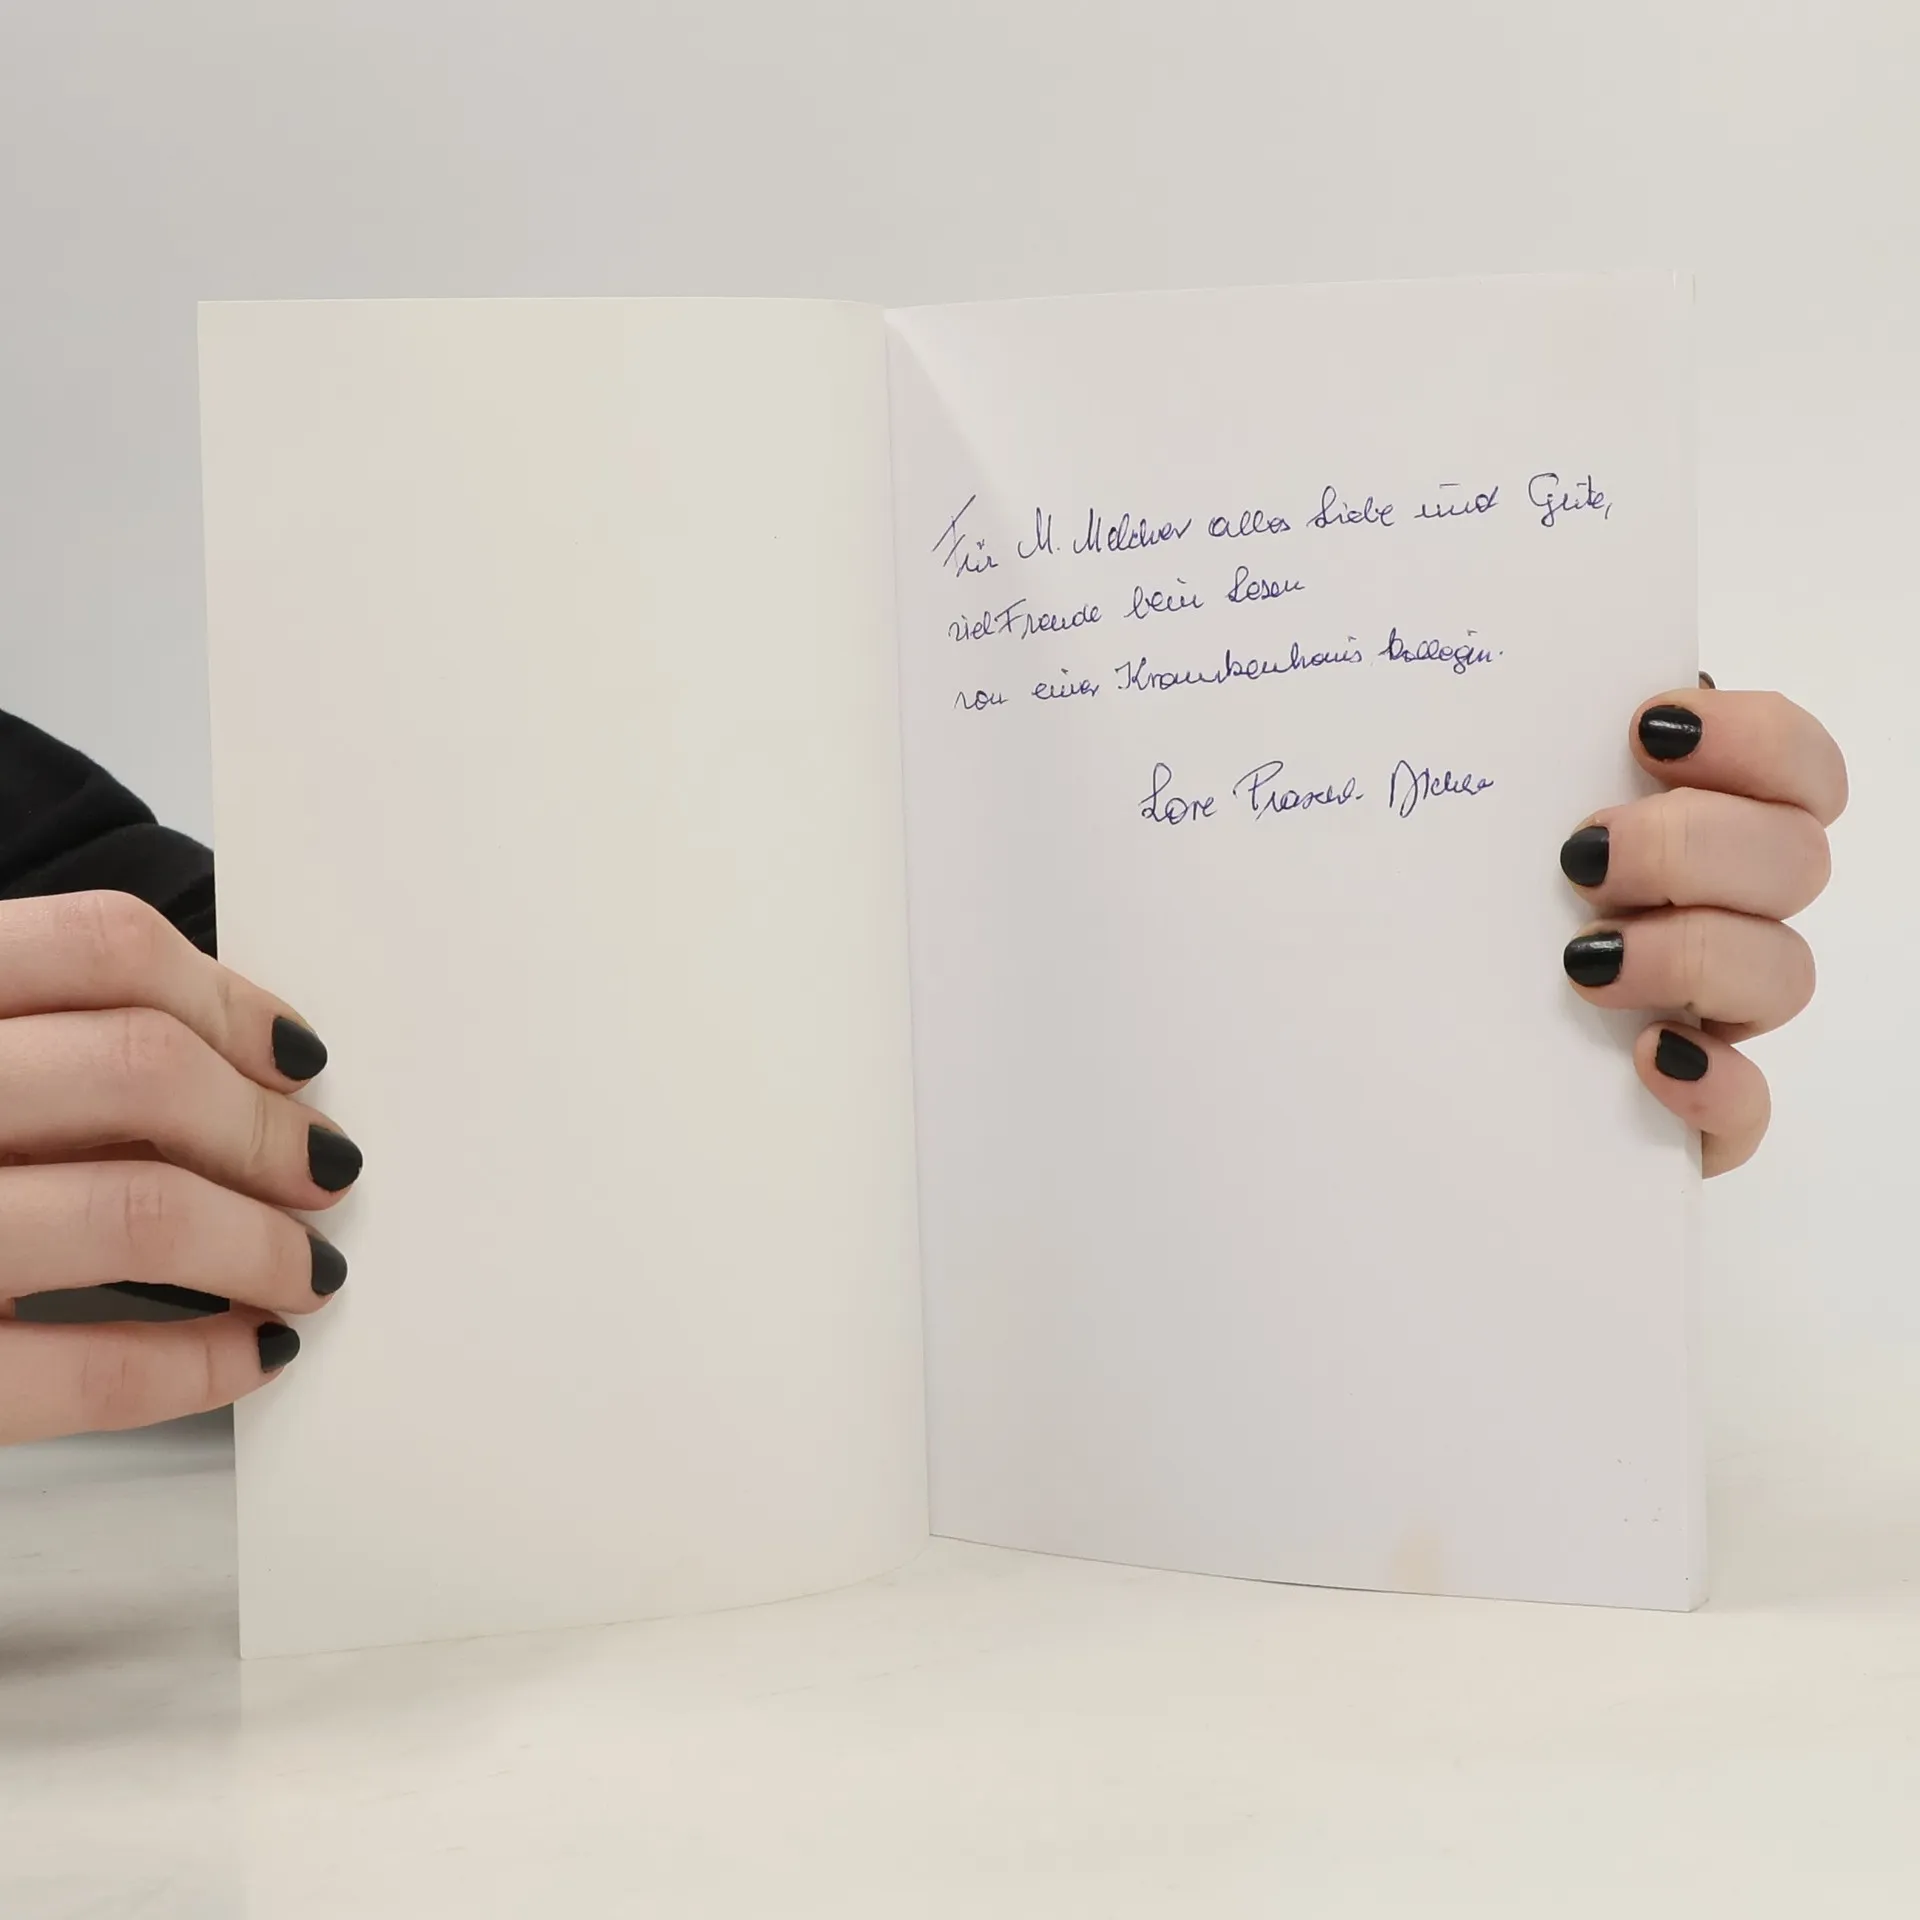 Für M. Melcher alles Liebe und Gute,
viel Freude beim Lesen
von einer Krankenhaus kollegin.
Lore